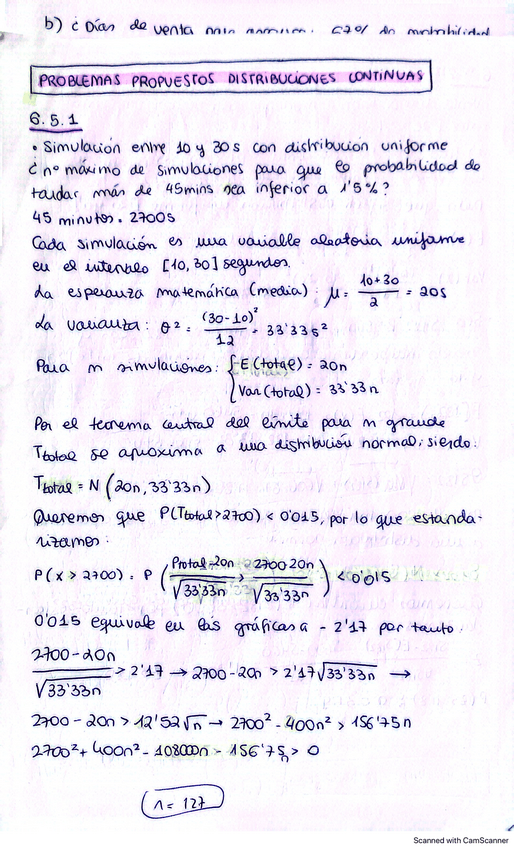 b) ¿ Días de venta 67% de probabilidad
PROBLEMAS PROPUESTOS DISTRIBUCIONES CONTINUAS
6.5.1
• Simulación entre 10 y 30s con distribución uniforme
¿ nº máximo de simulaciones para que la probabilidad de
tardar más de 45mins sea inferior a 1'5%?
45 minutos = 2700s
Cada simulación es una variable aleatoria uniforme
en el intervalo [10,30] segundos.
La esperanza matemática (media): μ = (10+30)/2 = 20s
La varianza: θ² = (30-10)²/12 = 33'33s²
Para n simulaciones: { E(total) = 20n
Var(total) = 33'33n
Por el teorema central del límite para n grande
Ttotal se aproxima a una distribución normal, siendo:
Ttotal = N (20n, 33'33n)
Queremos que P(Ttotal>2700) < 0'015, por lo que estanda-
rizamos:
P(x > 2700) = P ( (Ptotal-20n)/√33'33n > (2700 20n)/√33'33n ) < 0'015
0'015 equivale en las gráficas a - 2'17 por tanto:
(2700-20n)/√33'33n > 2'17 → 2700-20n > 2'17√33'33n →
2700-20n > 12'52√n → 2700² - 400n² > 156'75n
2700² + 400n² - 108000n - 156'75n > 0
n = 127
Scanned with CamScanner